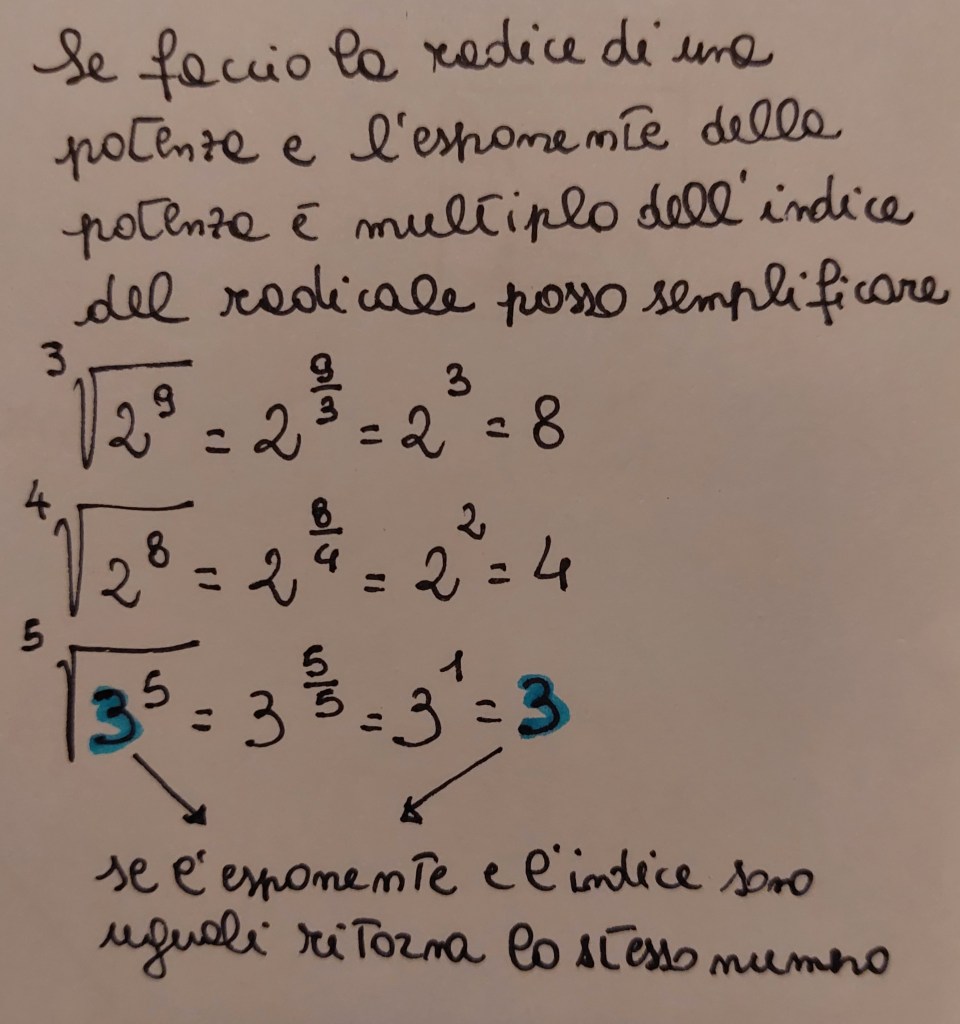 Se faccio la radice di una
potenza e l'esponente della
potenza è multiplo dell'indice
del radicale posso semplificare
³√2⁹ = 2^(9/3) = 2³ = 8
⁴√2⁸ = 2^(8/4) = 2² = 4
⁵√3⁵ = 3^(5/5) = 3¹ = 3
se l'esponente e l'indice sono
uguali ritorna lo stesso numero